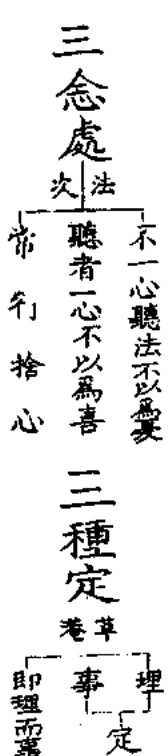 三念處
法次
不一心聽法不以爲憂
聽者一心不以爲喜
常行捨心
三種定
草菴
理
事
定
即理而事